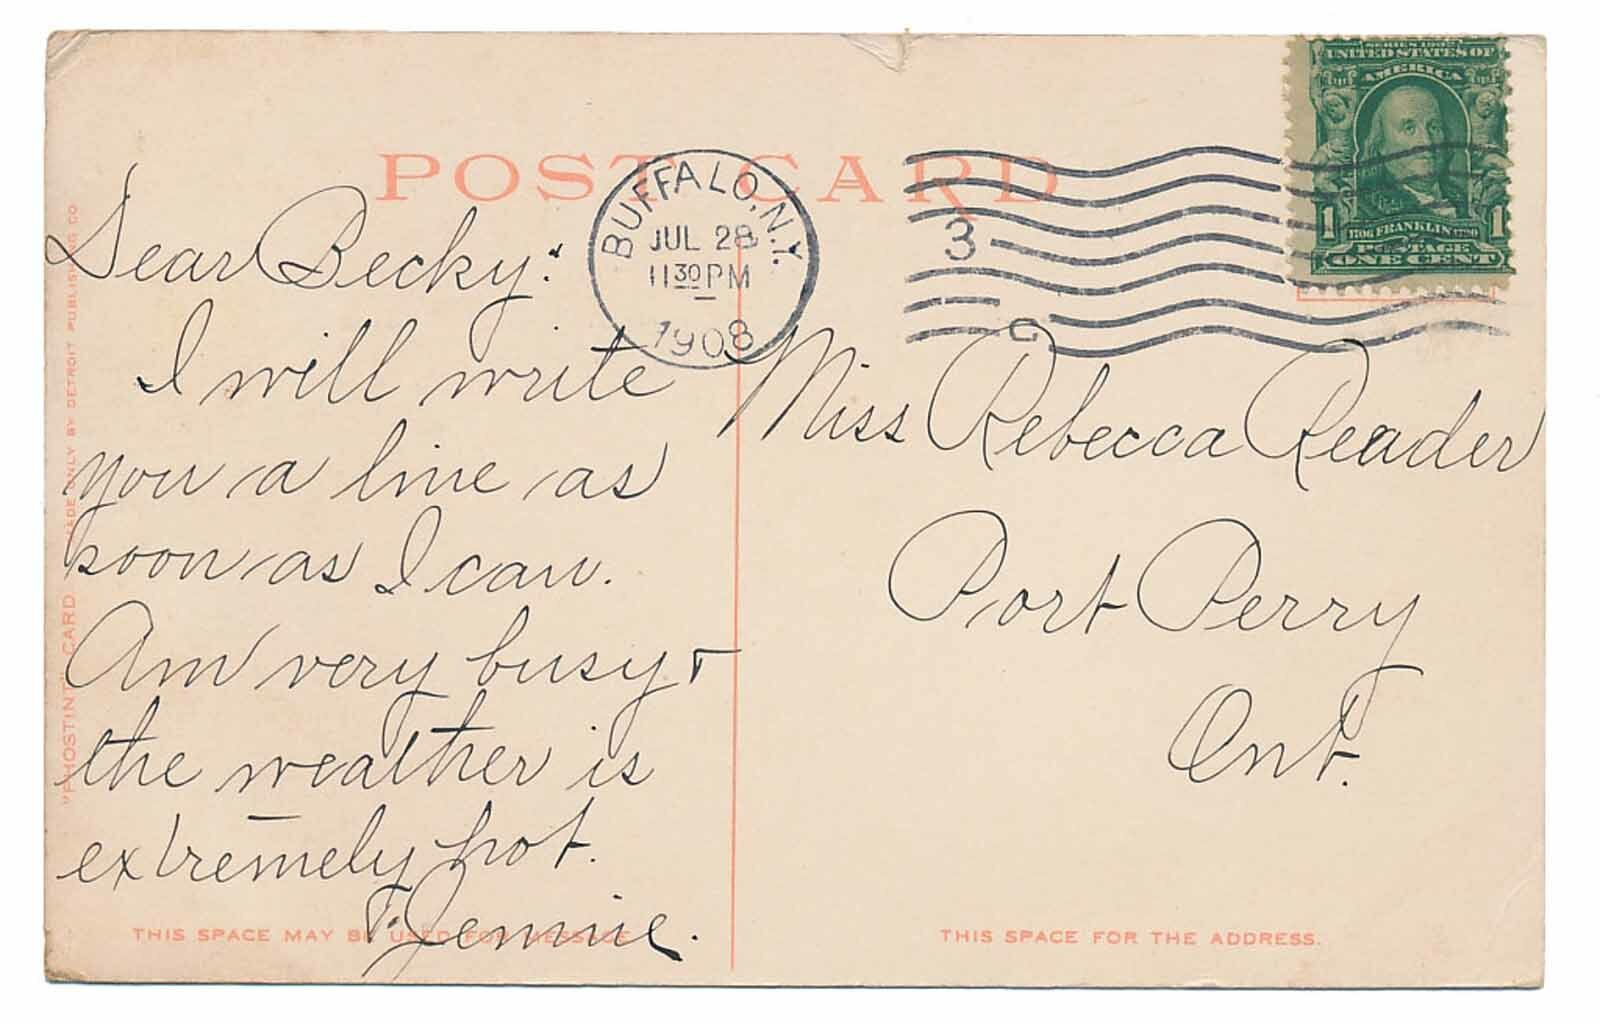 POST CARD
BUFFALO, N.Y.
JUL 28
11 30 PM
1908
3
C
SERIES 1902
UNITED STATES OF
AMERICA
1 1706 FRANKLIN 1790 1
POSTAGE
ONE CENT
Dear Becky:
I will write
you a line as
soon as I can.
Am very busy +
the weather is
extremely hot.
Jennie.
Miss Rebecca Reader
Port Perry
Ont.
"PHOSTINT" CARD MADE ONLY BY DETROIT PUBLISHING CO
THIS SPACE MAY BE USED FOR MESSAGE
THIS SPACE FOR THE ADDRESS.